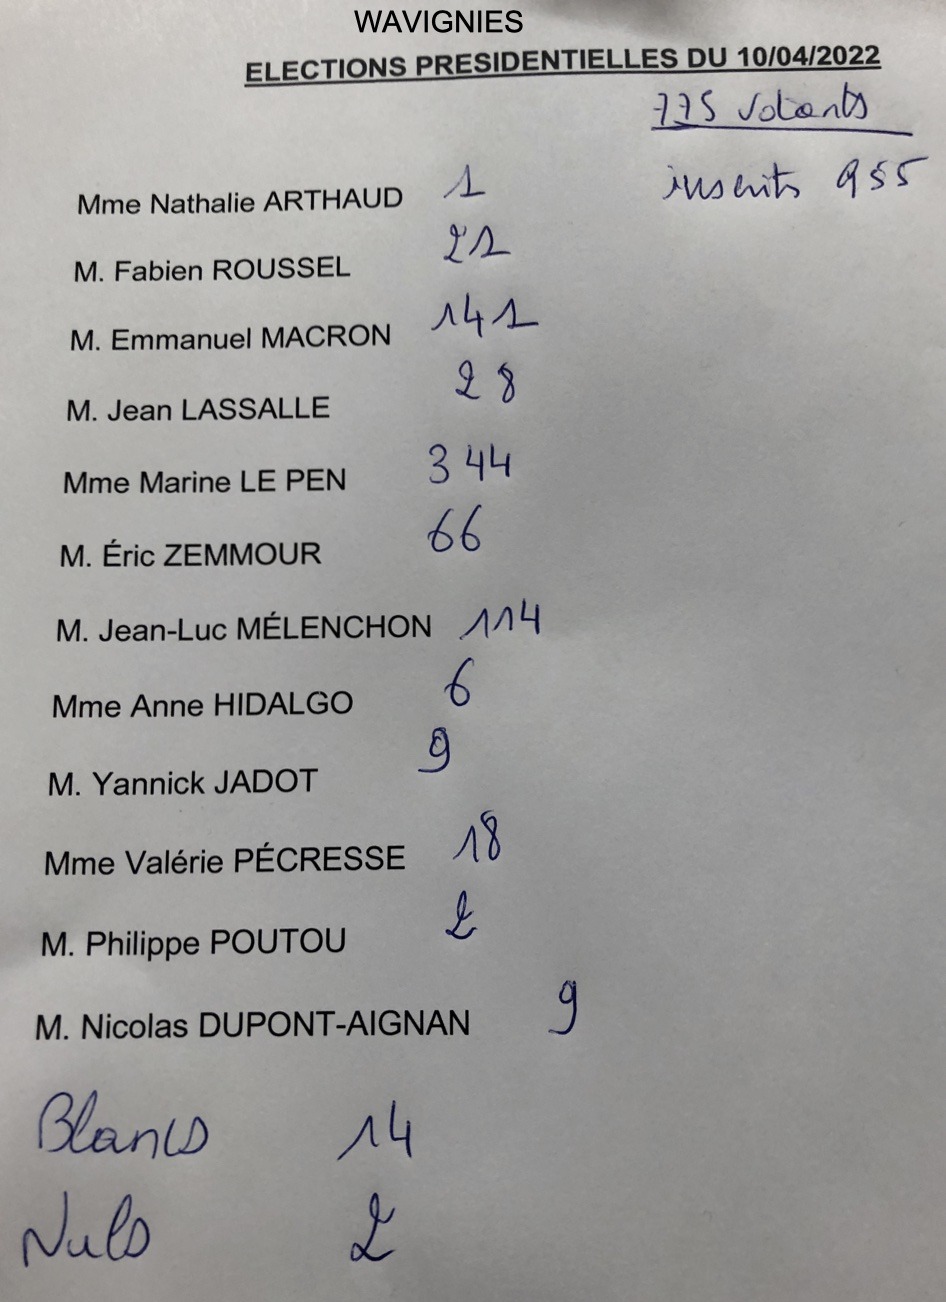 WAVIGNIES
ELECTIONS PRESIDENTIELLES DU 10/04/2022
775 votants
inscrits 955
Mme Nathalie ARTHAUD 1
M. Fabien ROUSSEL 21
M. Emmanuel MACRON 141
M. Jean LASSALLE 28
Mme Marine LE PEN 344
M. Éric ZEMMOUR 66
M. Jean-Luc MÉLENCHON 114
Mme Anne HIDALGO 6
M. Yannick JADOT 9
Mme Valérie PÉCRESSE 18
M. Philippe POUTOU 2
M. Nicolas DUPONT-AIGNAN 9
Blancs 14
Nuls 2